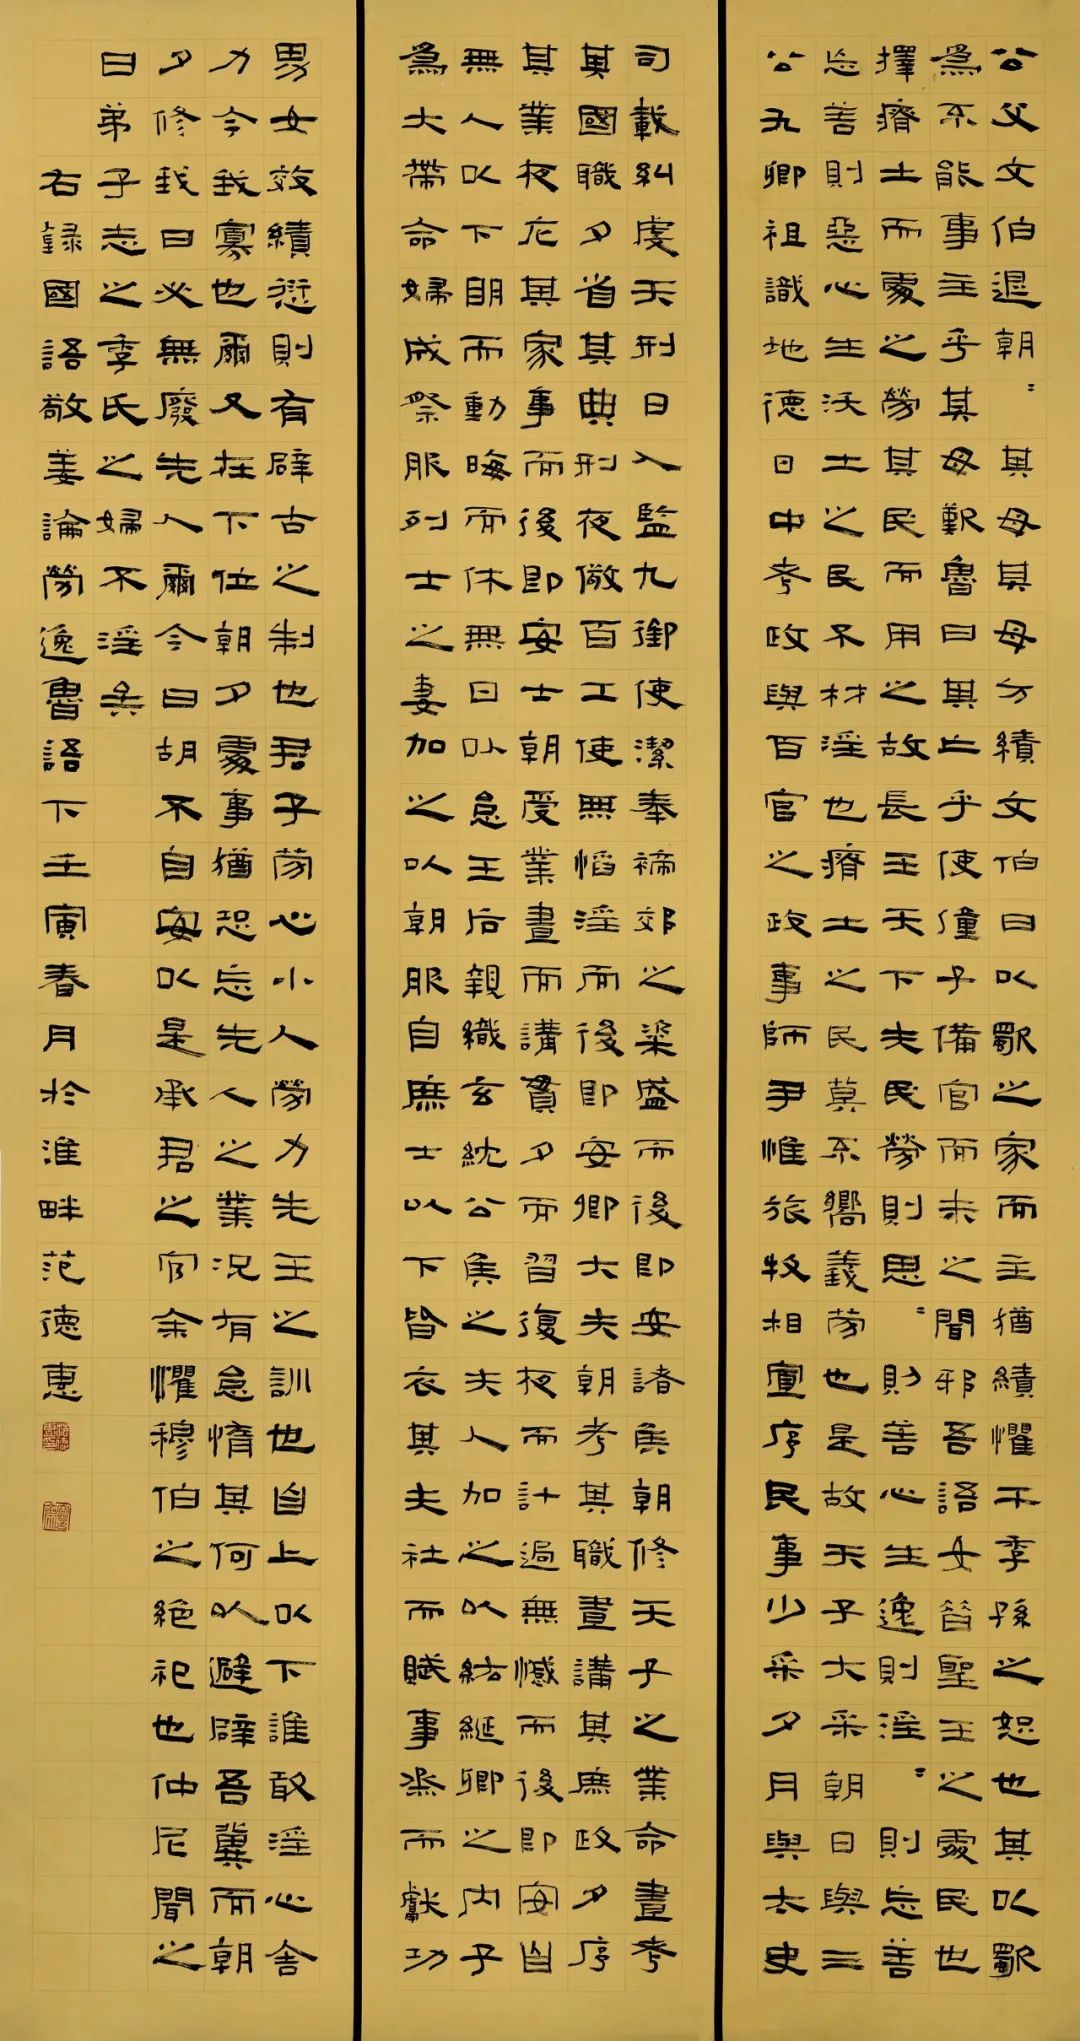 公父文伯退朝〻其母其母方績文伯曰以歜之家而主猶績懼干季孫之怒也其以歜
為不能事主乎其母歎魯曰其亡乎使僮子備官而未之聞邪吾語女昔聖王之處民也
擇瘠土而處之勞其民而用之故長王天下夫民勞則思〻則善心生逸則淫〻則忘善
忘善則惡心生沃土之民不材淫也瘠土之民莫不嚮義勞也是故天子大采朝日與三
公九卿祖識地德日中考政與百官之政事師尹惟旅牧相宣序民事少采夕月與太史
司載糾虔天刑日入監九御使潔奉禘郊之粢盛而後即安諸侯朝修天子之業命晝考
其國職夕省其典刑夜儆百工使無慆淫而後即安卿大夫朝考其職晝講其庶政夕序
其業夜庀其家事而後即安士朝受業晝而講貫夕而習復夜而計過無憾而後即安自
無人以下明而動晦而休無日以怠王后親織玄紞公侯之夫人加之以紘綖卿之內子
為大帶命婦成祭服列士之妻加之以朝服自庶士以下皆衣其夫社而賦事烝而獻功
男女效績愆則有辟古之制也君子勞心小人勞力先王之訓也自上以下誰敢淫心舍
力今我寡也爾又在下位朝夕處事猶恐忘先人之業況有怠惰其何以避辟吾冀而朝
夕修我曰必無廢先人爾今曰胡不自安以是承君之官余懼穆伯之絕祀也仲尼聞之
曰弟子志之季氏之婦不淫矣
右録國語敬姜論勞逸魯語下壬寅春月於淮畔范德惠